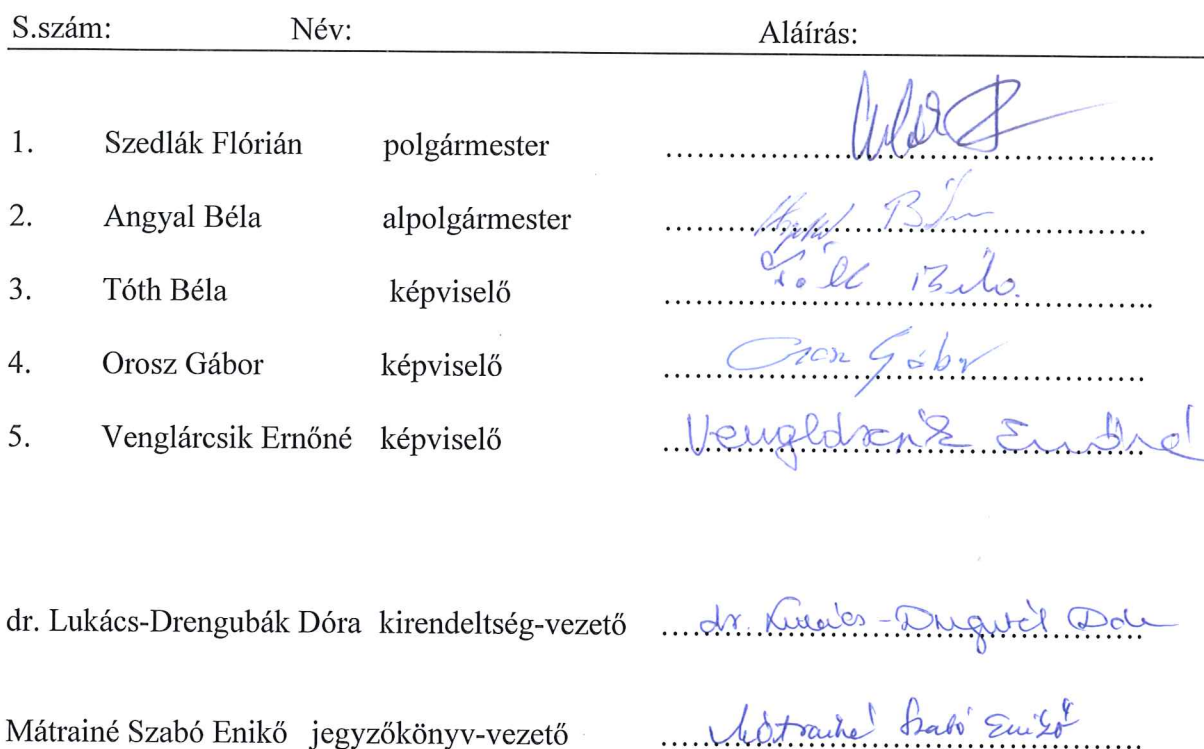 S.szám: Név: Aláírás:
1. Szedlák Flórián polgármester ...........................................................
2. Angyal Béla alpolgármester ........................................................... Béla
3. Tóth Béla képviselő ........................................................... Tóth Béla.
4. Orosz Gábor képviselő ........................................................... Orosz Gábor
5. Venglárcsik Ernőné képviselő ........................................................... Venglárcsik Ernőné
dr. Lukács-Drengubák Dóra kirendeltség-vezető ........................................................... dr. Lukács-Drengubák Dóra
Mátrainé Szabó Enikő jegyzőkönyv-vezető ........................................................... Mátrainé Szabó Enikő